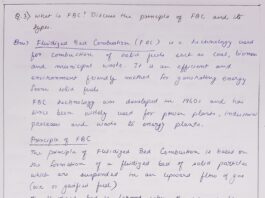 Q.3) what is FBC? Discuss the principle of FBC and its
types.
Ans: Fluidized Bed Combustion (FBC) is a technology used
for combustion of solid fuels such as coal, biomass
and municipal waste. It is an efficient and
environment friendly method for generating energy
from solid fuels
FBC technology was developed in 1960s and has
since been widely used for power plants, industrial
processes and waste to energy plants.
Principle of FBC
The principle of Fluidized Bed Combustion is based on
the formation of a fluidized bed of solid particles
which are suspended in an upward flow of gas
(air or gasified fuel)